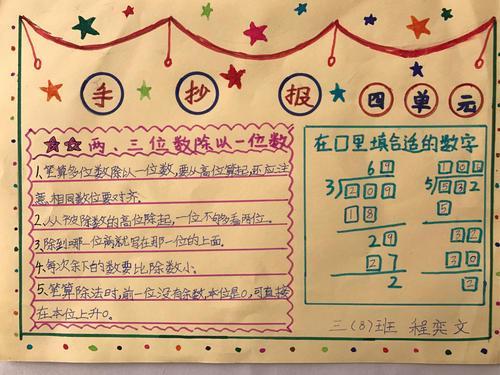 手抄报 四单元
两、三位数除以一位数
1.笔算多位数除以一位数,要从高位算起,还应注
意相同数位要对齐.
2.从被除数的高位除起,一位不够看两位.
3.除到哪一位商就写在那一位的上面.
4.每次余下的数要比除数小.
5.笔算除法时,前一位没有余数,本位是0,可直接
在本位上升0.
在口里填合适的数字
69
3)209
18
29
27
2
5)532
5
32
30
2
三(8)班 程奕文